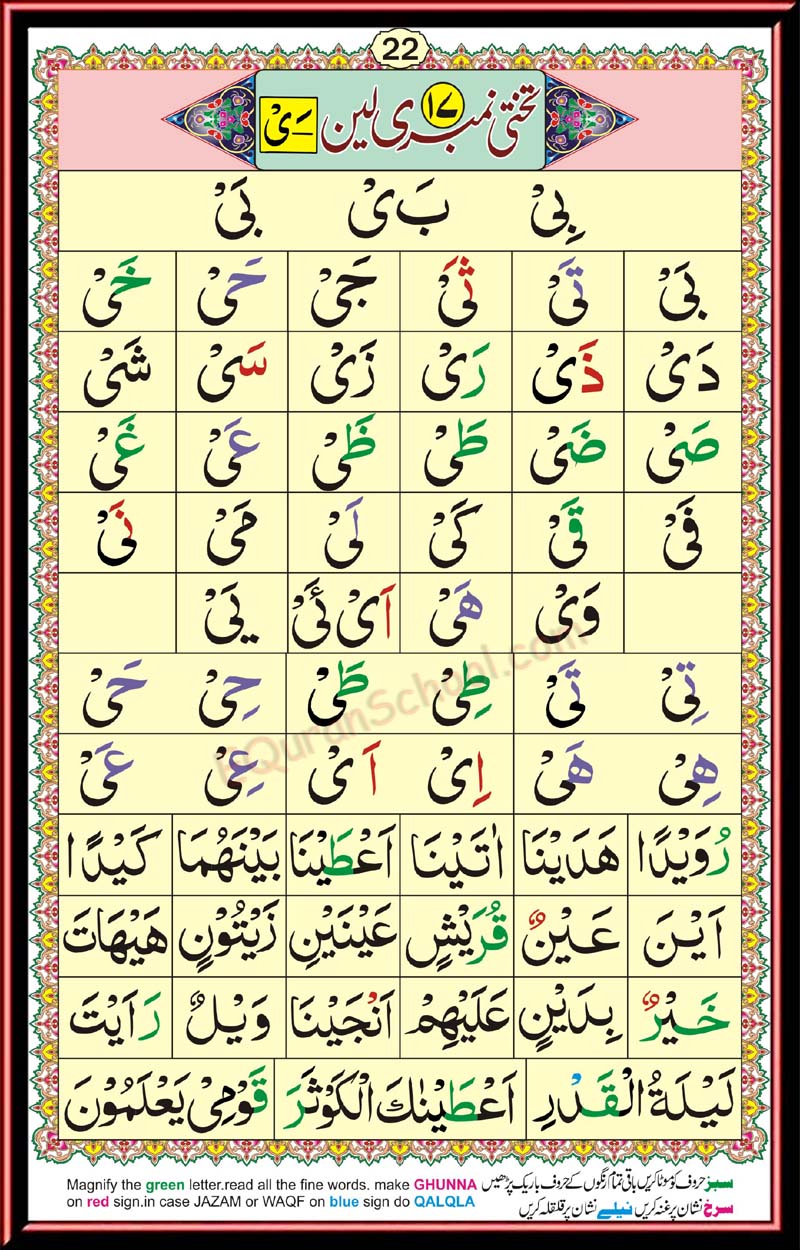 22
تختی نمبر ۱۷ ی لین ـَیْ
بِیْ بَ یْ بَیْ
بَیْ تَیْ ثَیْ جَیْ حَیْ خَیْ
دَیْ ذَیْ رَیْ زَیْ سَیْ شَیْ
صَیْ ضَیْ طَیْ ظَیْ عَیْ غَیْ
فَیْ قَیْ کَیْ لَیْ مَیْ نَیْ
وَیْ هَیْ اَیْ ئَیْ یَیْ
تِیْ تَیْ طِیْ طَیْ حِیْ حَیْ
هِیْ هَیْ اِیْ اَیْ عِیْ عَیْ
رُوَیْدًا هَدَیْنَا اٰتَیْنَا اَعْطَیْنَا بَیْنَهُمَا کَیْدًا
اَیْنَ عَیْنٌ قُرَیْشٍ عَیْنَیْنِ زَیْتُوْنٍ هَیْهَاتَ
خَیْرٌ بِدَیْنٍ عَلَیْهِمْ اَنْجَیْنَا وَیْلٌ رَاَیْتَ
لَیْلَةُ الْقَدْرِ اَعْطَیْنٰكَ الْکَوْثَرَ قَوْمِیْ یَعْلَمُوْنَ
EQuranSchool.com
Magnify the green letter.read all the fine words. make GHUNNA
on red sign.in case JAZAM or WAQF on blue sign do QALQLA
سبز حروف کو موٹا کریں باقی تمام رنگوں کے حروف باریک پڑھیں
سرخ نشان پر غنہ کریں نیلے نشان پر قلقلہ کریں